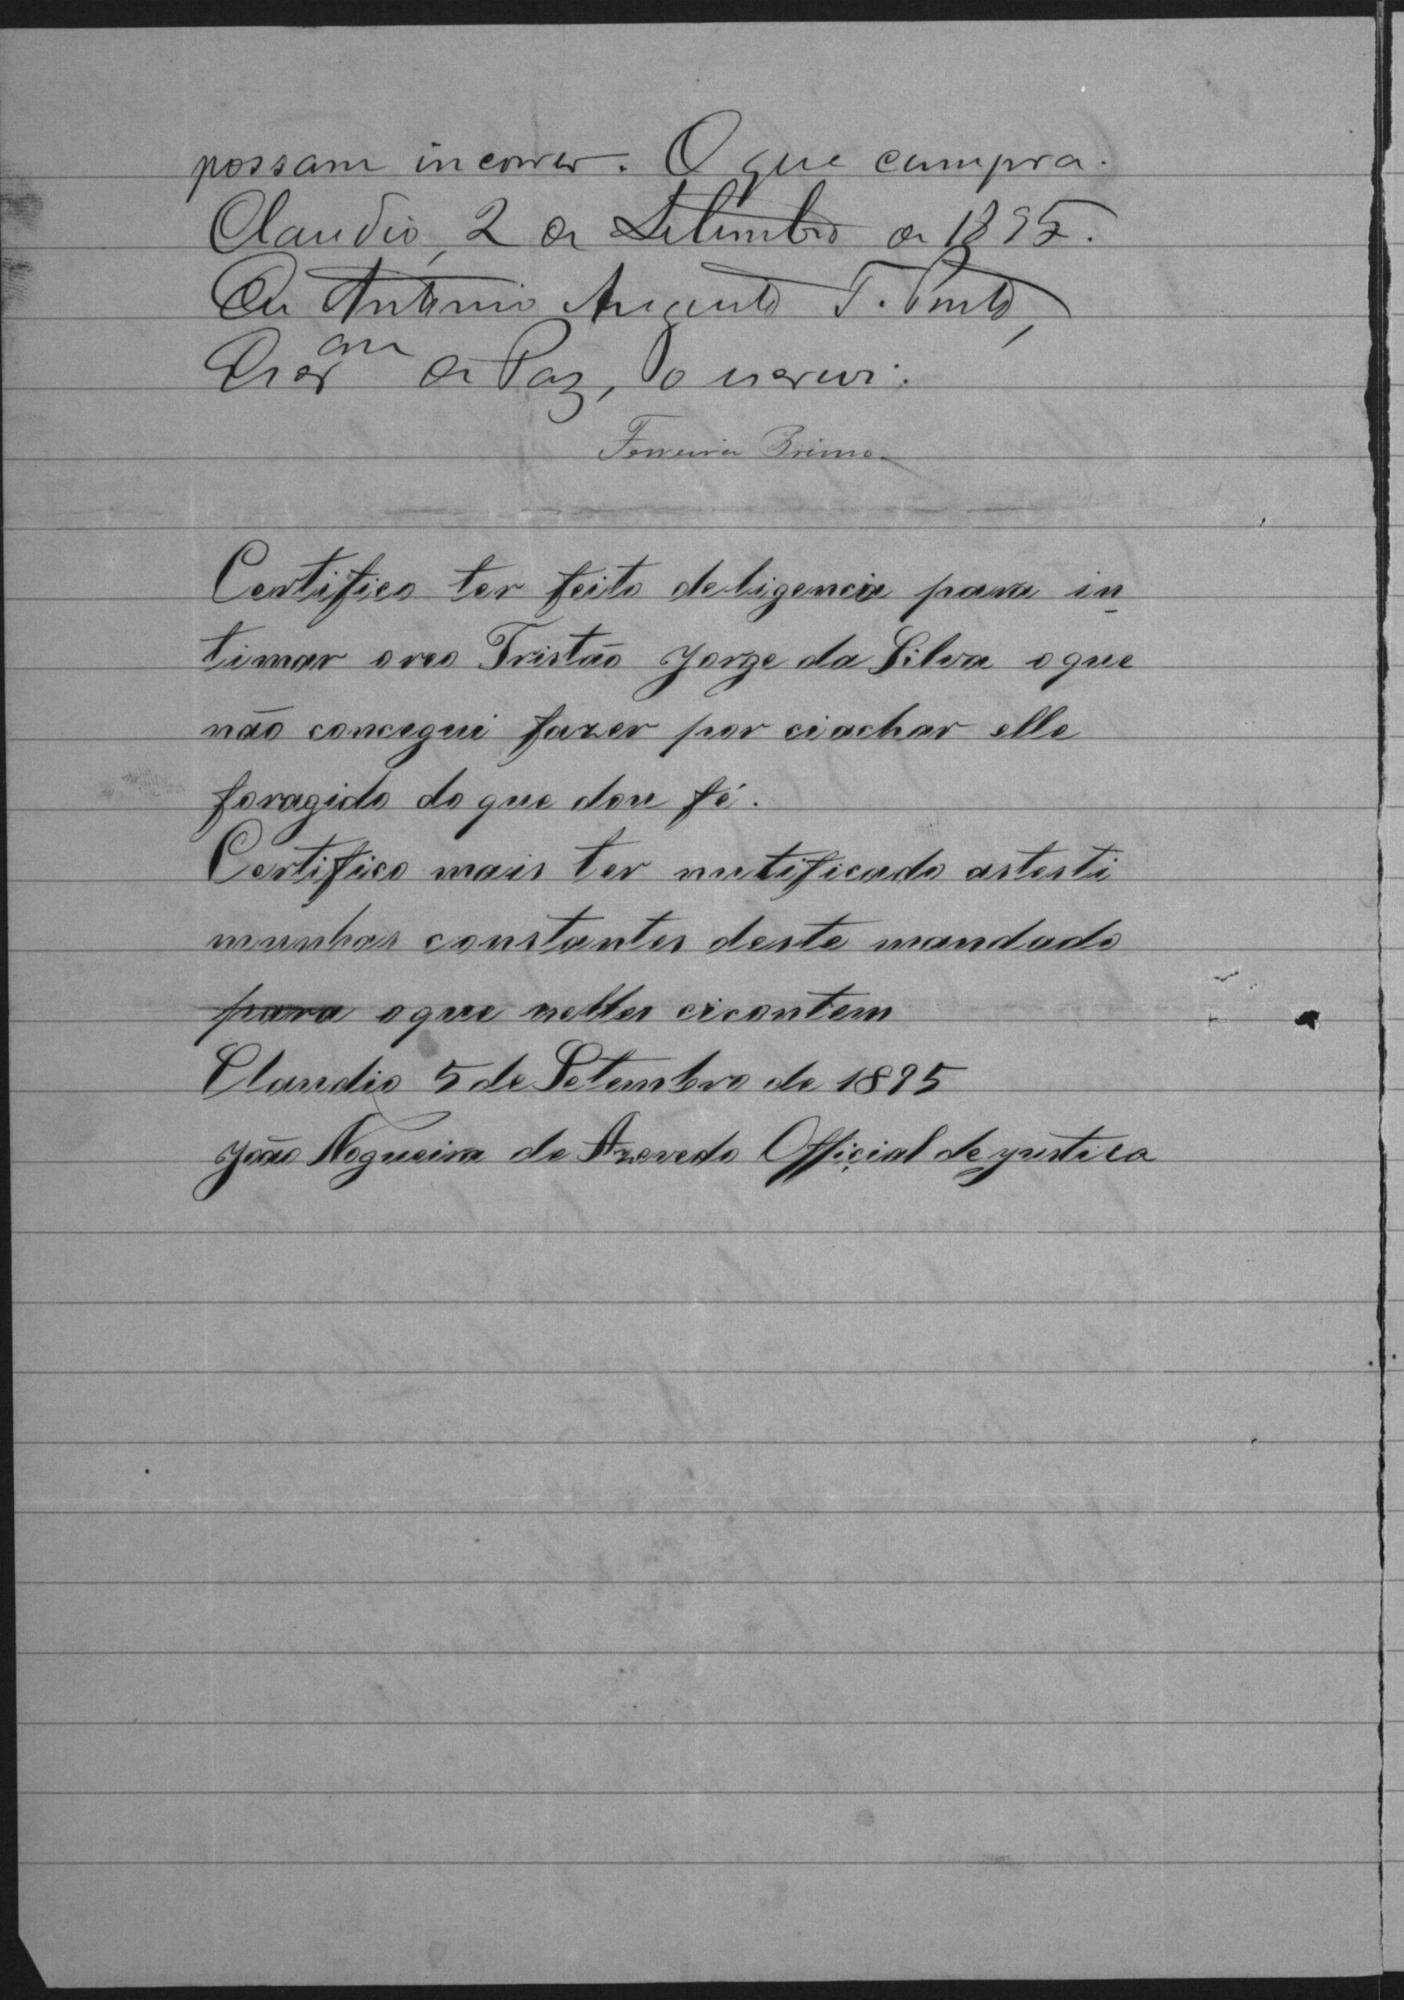 possam incorrer. O que cumpra.
Claudio, 2 de Setembro de 1895.
Eu Antonio Augusto T. Pinto,
Escr am de Paz, o escrevi.
Ferreira Primo
Certifico ter feito deligencia para in
timar oreo Tristão Jorge da Silva oque
não concegui fazer por ciachar elle
foragido do que dou fé.
Certifico mais ter nutificado astesti
munhas constantes deste mandado
para oque nelles cicontem
Claudio 5 de Setembro de 1895
João Nogueira de Azevedo Official de justica